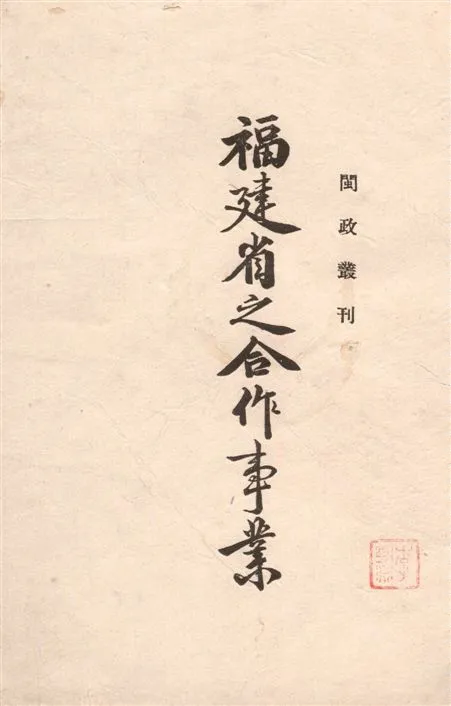 閩政叢刊
福建省之合作事業